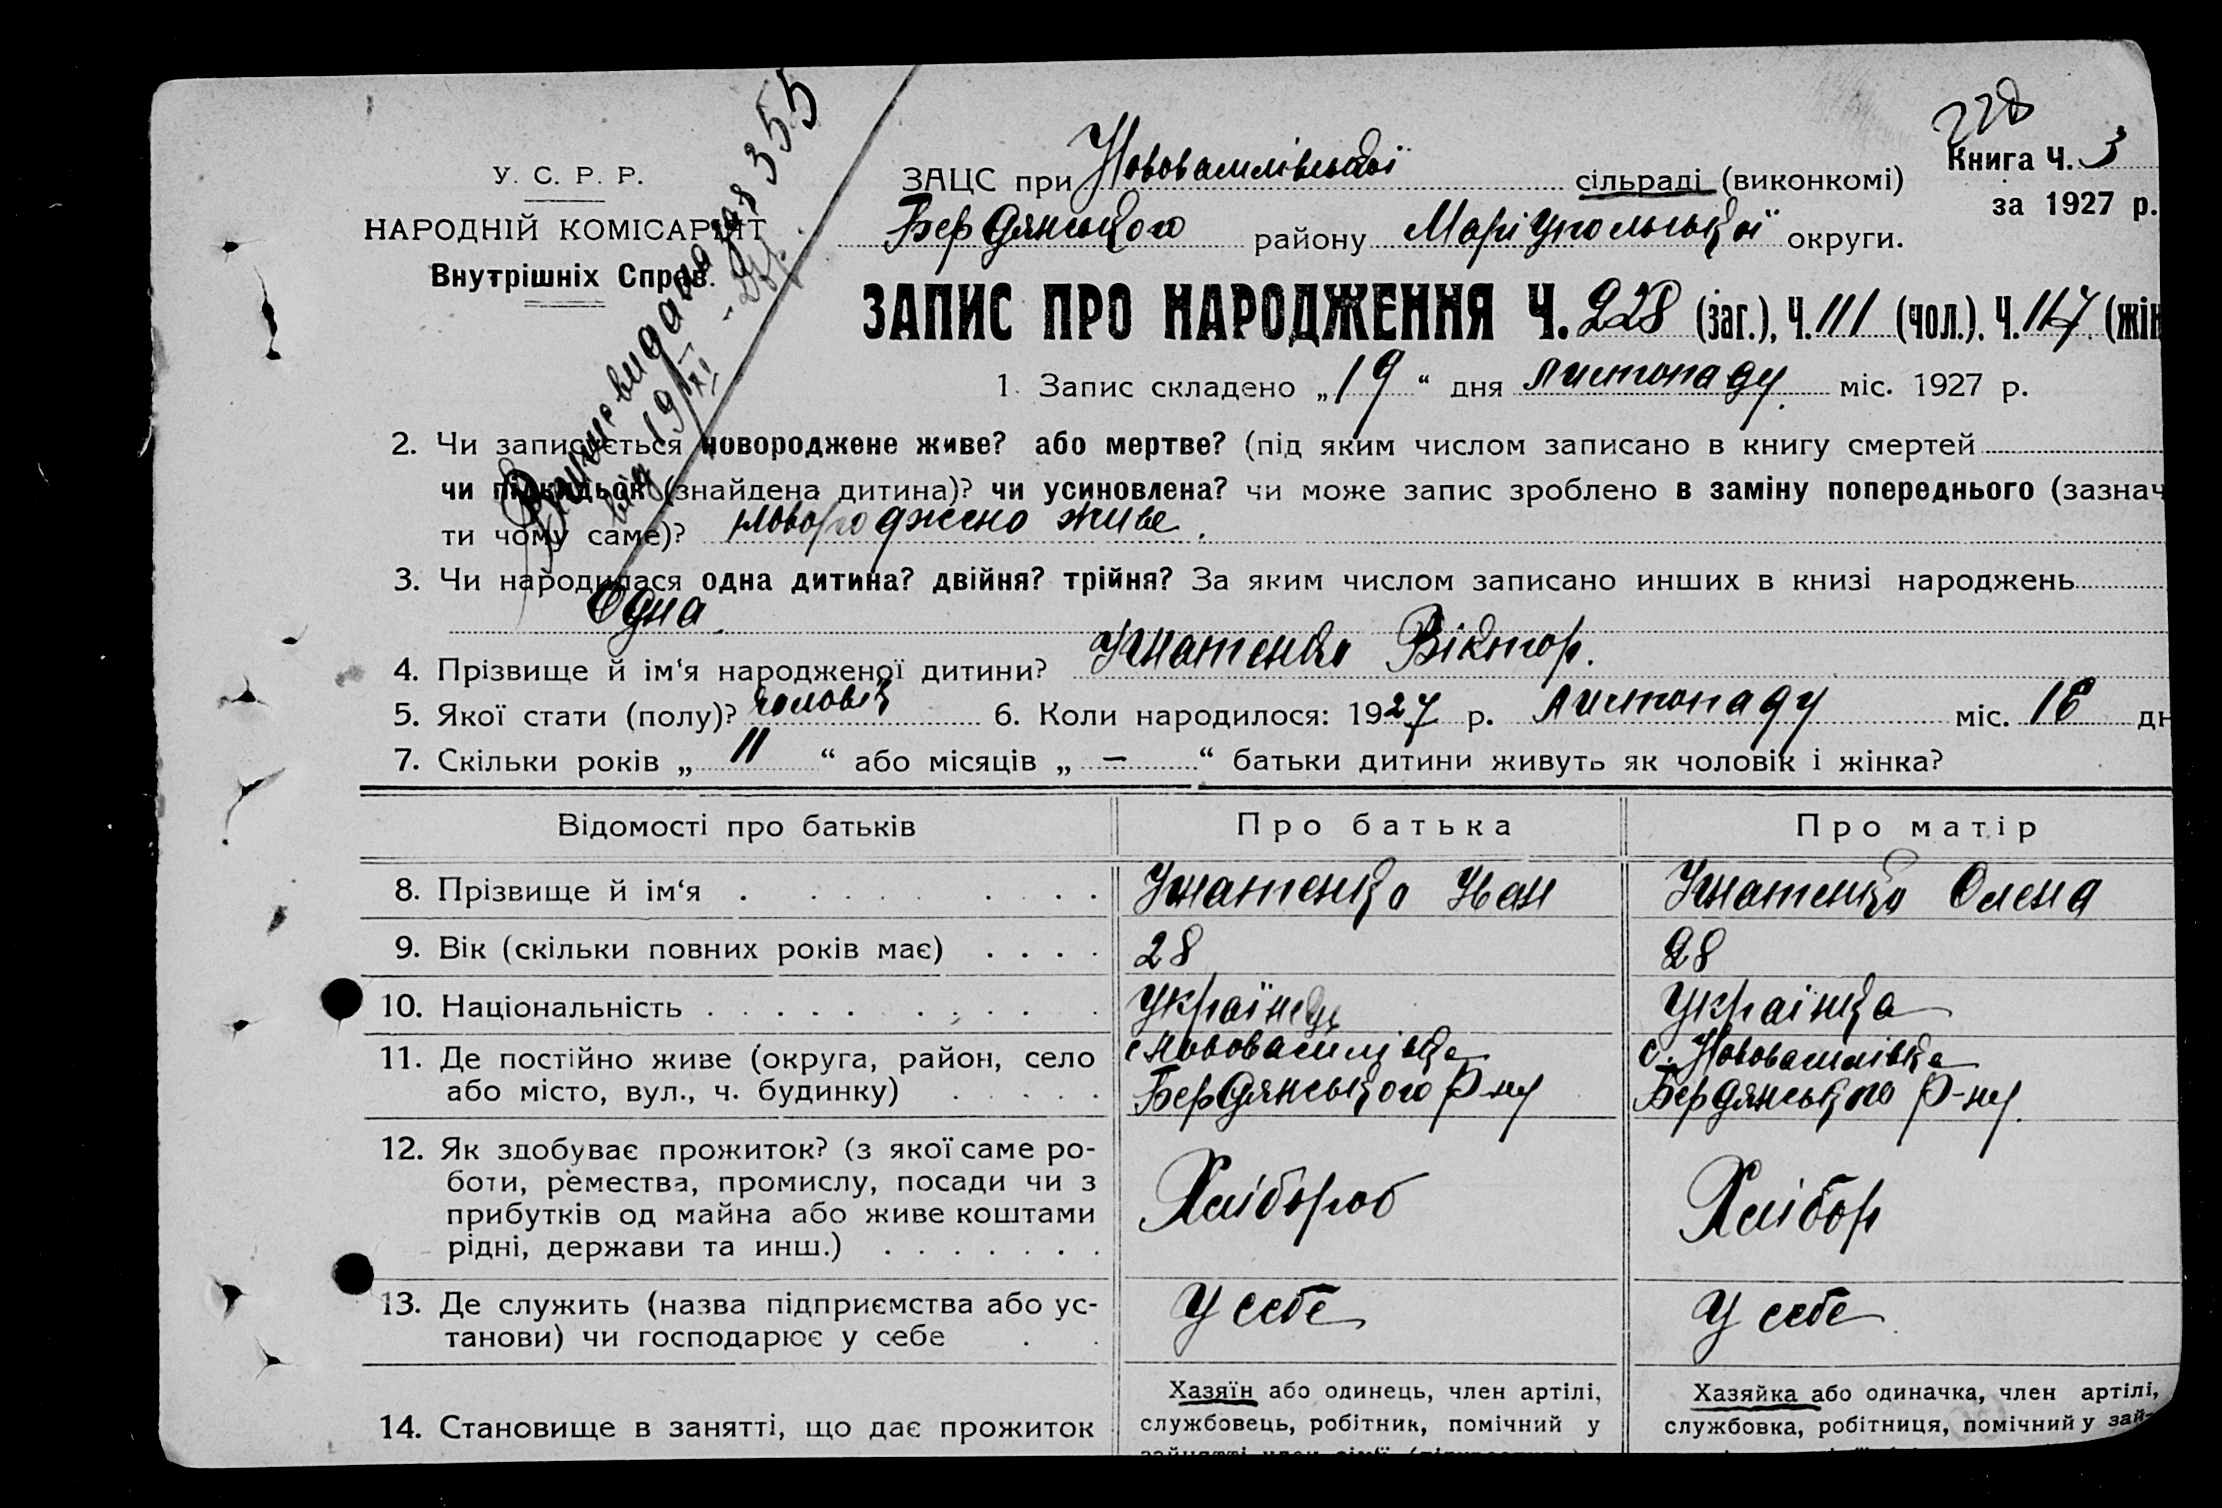 228
У. С. Р. Р.
НАРОДНІЙ КОМІСАРІЯТ
Внутрішніх Справ.
ЗАЦС при Нововасилівській сільраді (виконкомі)
Книга Ч. 3
за 1927 р.
Бердянського району Маріупольської округи.
ЗАПИС ПРО НАРОДЖЕННЯ Ч. 228 (заг.), Ч. 111 (чол.). Ч. 117 (жін
Виписе видана за № 355
від 19/XI
1. Запис складено „19“ дня листопаду міс. 1927 р.
2. Чи записується новороджене живе? або мертве? (під яким числом записано в книгу смертей
чи підкидьок (знайдена дитина)? чи усиновлена? чи може запис зроблено в заміну попереднього (зазнач
ти чому саме)? новороджено живе.
3. Чи народилася одна дитина? двійня? трійня? За яким числом записано инших в книзі народжень
Одна
4. Прізвище й ім‘я народженої дитини? Гнатенко Віктор.
5. Якої стати (полу)? чоловік 6. Коли народилося: 1927 р. листопаду міс. 18 дн
7. Скільки років „11“ або місяців „—“ батьки дитини живуть як чоловік і жінка?
Відомості про батьків Про батька Про матір
8. Прізвище й ім‘я Гнатенко Іван Гнатенко Олена
9. Вік (скільки повних років має) 28 28
10. Національність Українець Українка
11. Де постійно живе (округа, район, село с. Нововасилівка с. Нововасилівка
або місто, вул., ч. будинку) Бердянського р-ну Бердянського р-ну.
12. Як здобуває прожиток? (з якої саме ро-
боти, ремества, промислу, посади чи з Хлібороб Хлібор
прибутків од майна або живе коштами
рідні, держави та инш.)
13. Де служить (назва підприємства або ус- У себе У себе
танови) чи господарює у себе
Хазяїн або одинець, член артілі, Хазяйка або одиначка, член артілі,
14. Становище в занятті, що дає прожиток службовець, робітник, помічний у службовка, робітниця, помічний у зай-